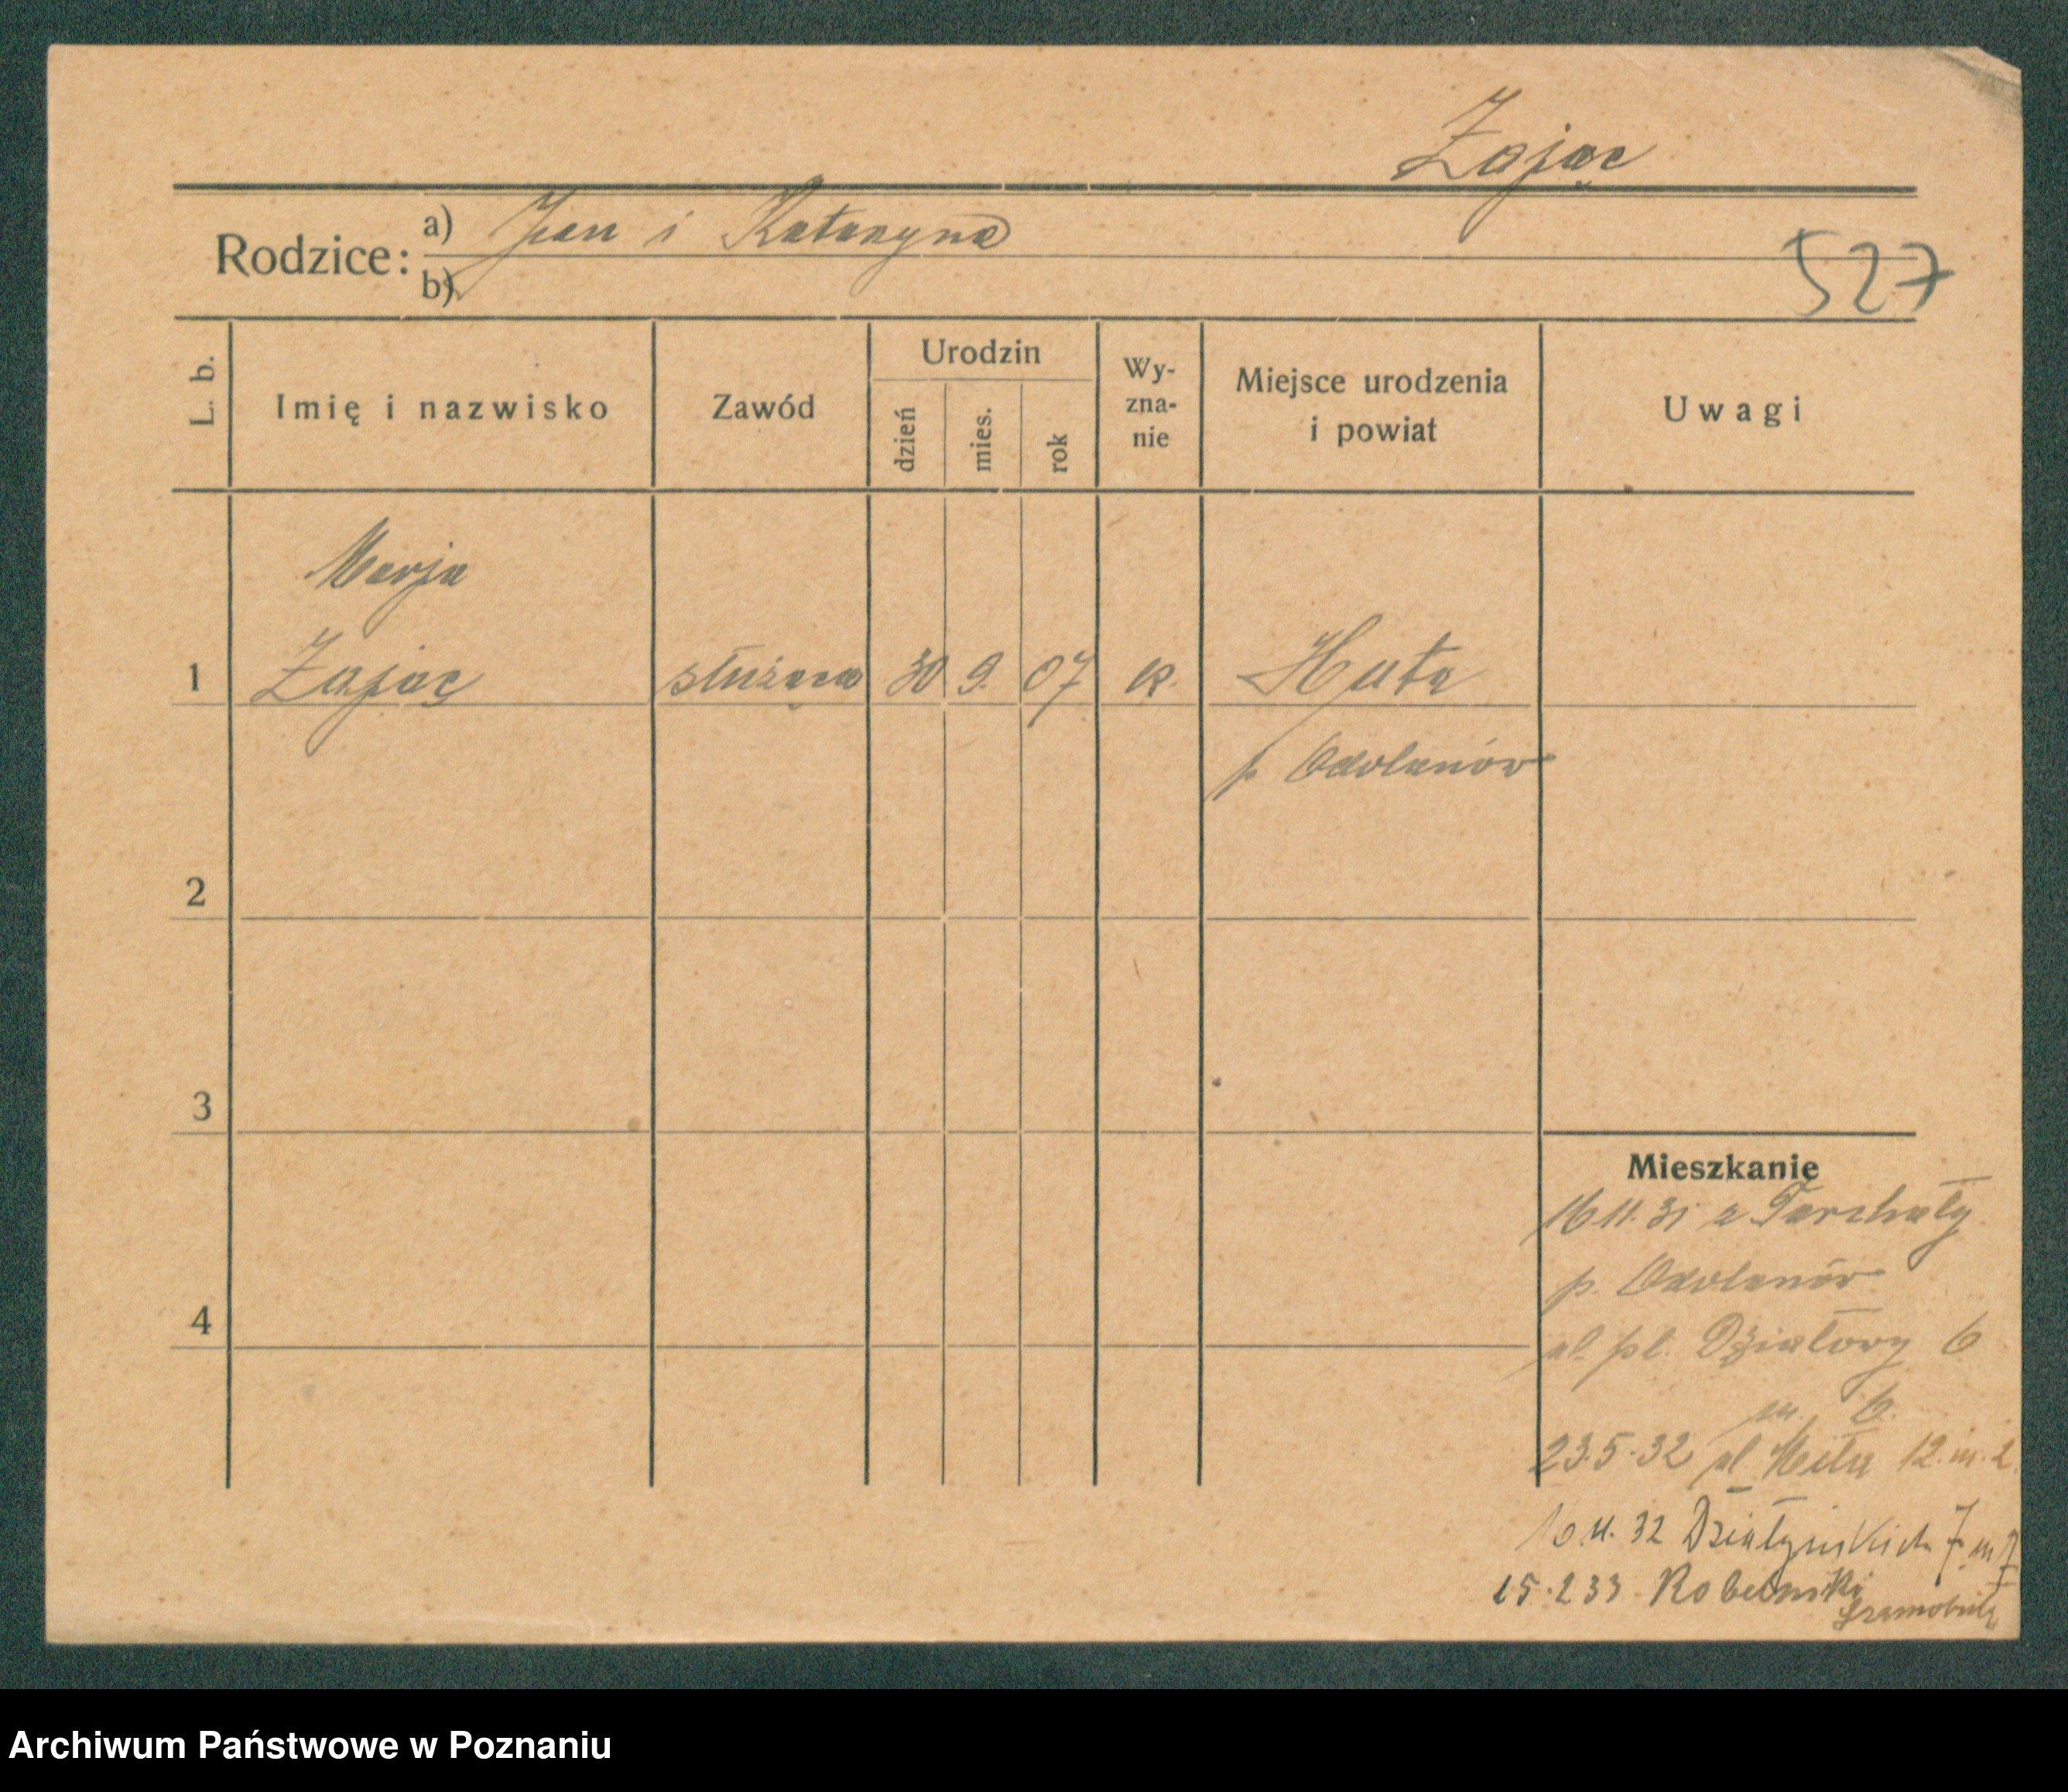 Zając
Rodzice:
a) Jan i Katarzyna
b)
527
L. b.
Imię i nazwisko
Zawód
Urodzin
dzień
mies.
rok
Wy-
zna-
nie
Miejsce urodzenia
i powiat
Uwagi
Marja
1 Zając służąca 30 9. 07 k. Huta
p Odolanów
2
3
Mieszkanie
16 11. 31 z Tarchały
p. Odolanów
4
ul. pl. Działowy 6
m. 6.
23.5.32 ul 12. m. 2
10.11.32 Działyńskich 7 m 7
15.2 33
Archiwum Państwowe w Poznaniu